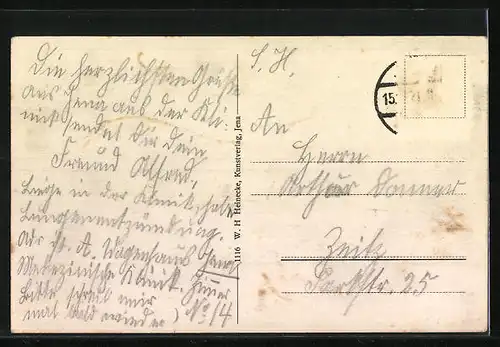 Die herzlichsten Grüße
aus Jena aus der Kli-
nik sendet Dir Dein
Freund Alfred.
Liege in der Klinik, habe
Lungenentzündung.
Adr. A. Wagenhaus Jena
Medezinische Klinik. Zimmer
Bitte schreib mir No 14
mal bald wieder
1116 W. H Heinecke, Kunstverlag, Jena
S. H.
15.
An
Herrn
Arthur Donner
Zeitz
Parkstr. 25